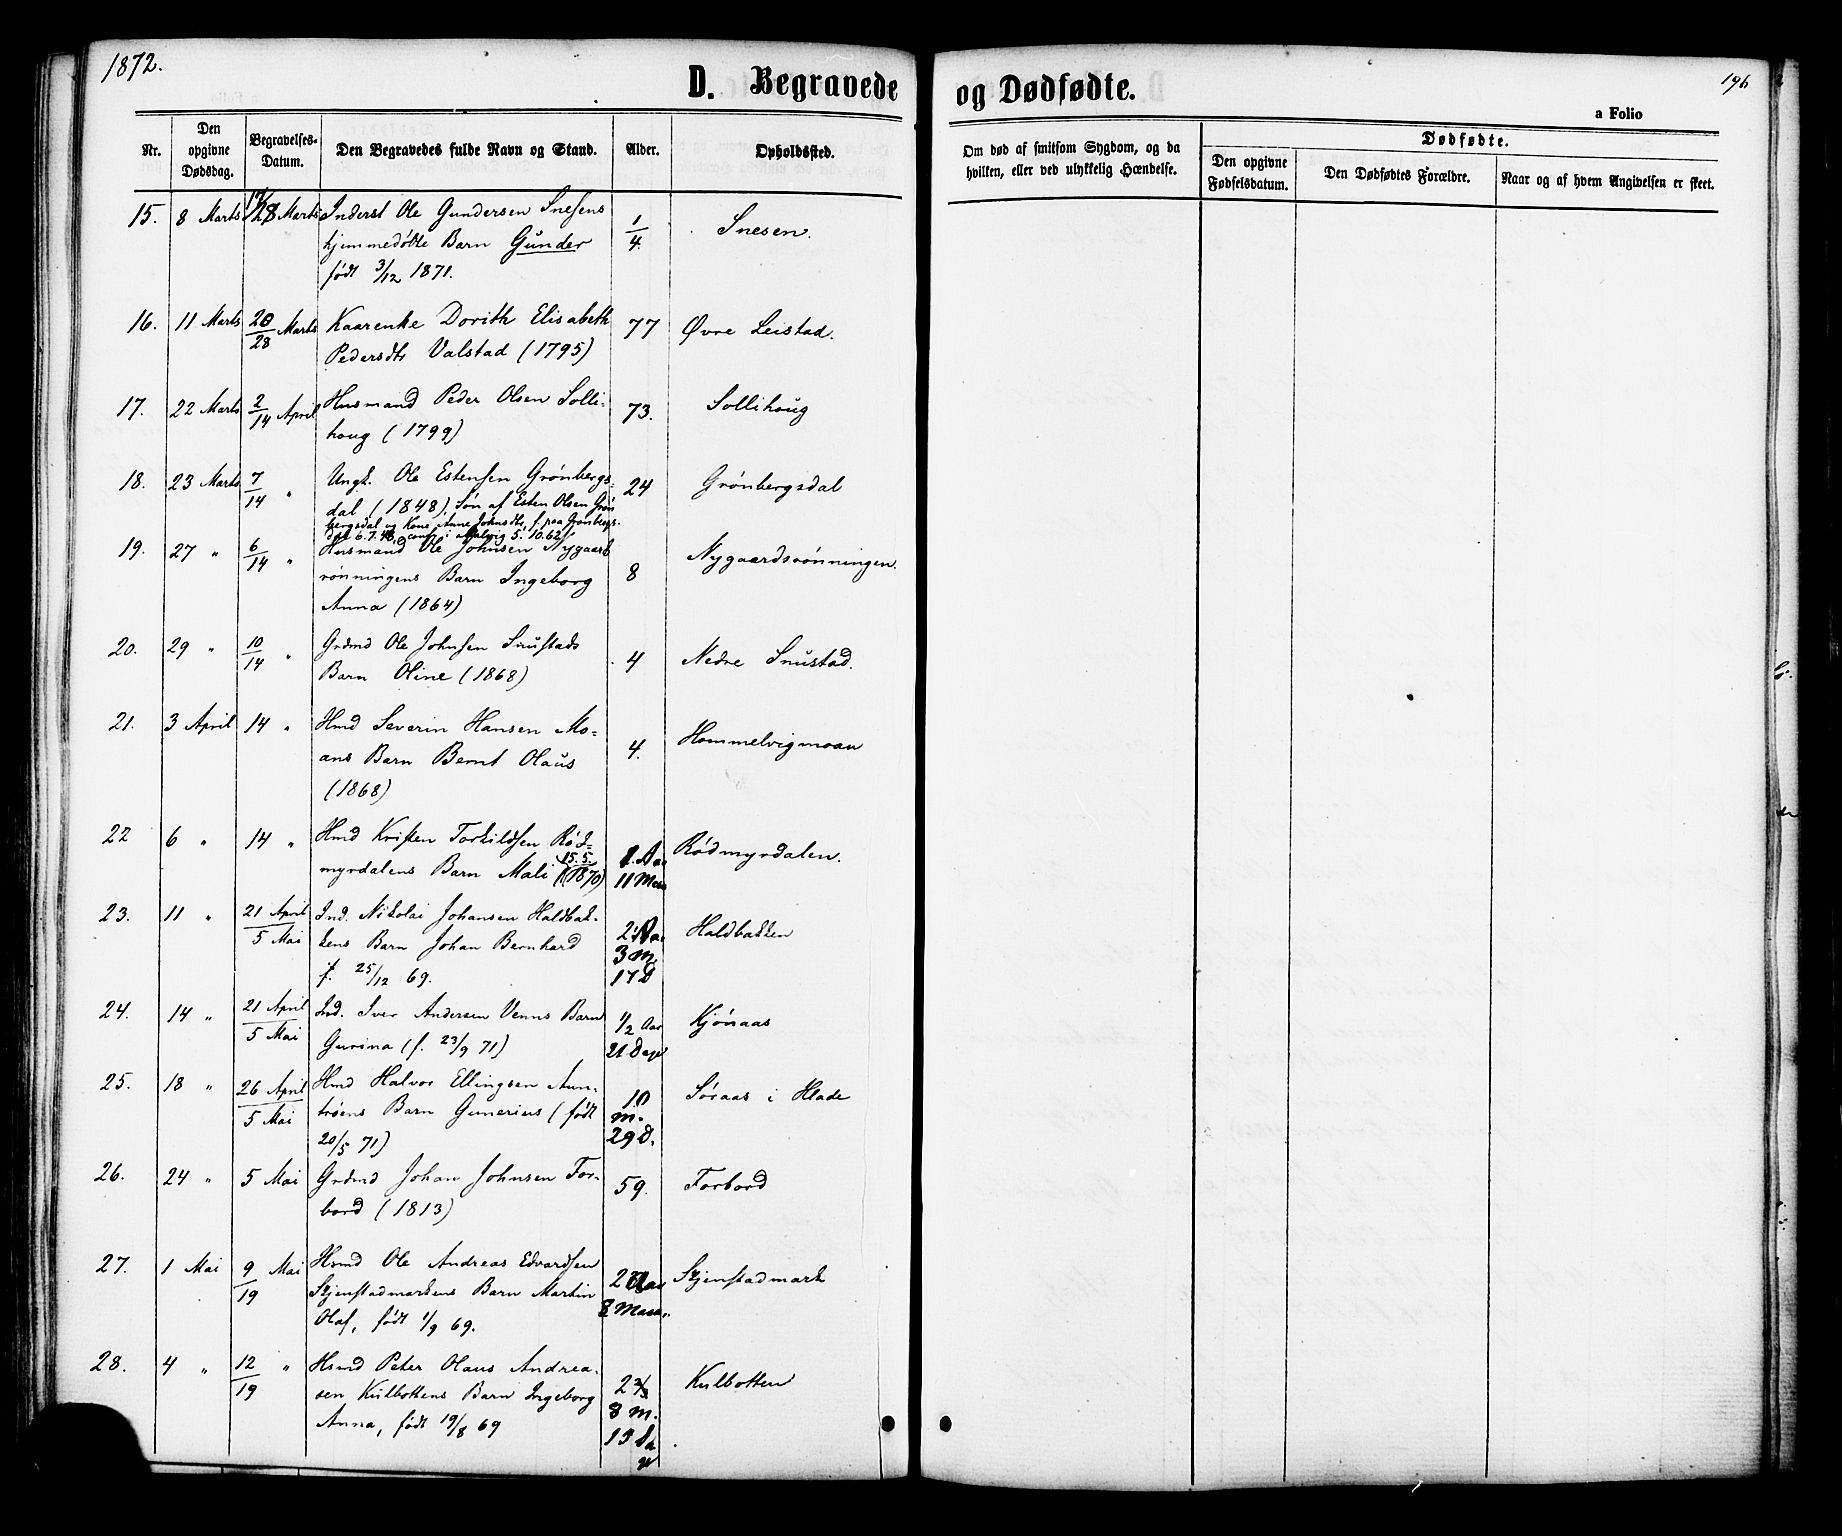 1872.
D. Begravede og Dødfødte.
196
a Folio
Nr.
Den opgivne Dødsdag.
Begravelses-Datum.
Den Begravedes fulde Navn og Stand.
Alder.
Opholdssted.
Om død af smitsom Sygdom, og da hvilken, eller ved ulykkelig Hændelse.
Dødfødte.
Den opgivne Fødselsdatum.
Den Dødfødtes Forældre.
Naar og af hvem Angivelsen er skeet.
15. 8 Marts 28 Marts Inderst Ole Gundersen Snesens 1/4. Snesen.
hjemmedøbte Barn Gunder
født 3/12 1871.
16. 11 Marts 20/28 Marts Kaarenke Dorith Elisabeth 77 Øvre Leistad.
Pedersdtr Valstad (1795)
17. 22 Marts 2/14 April Husmand Peder Olsen Solli- 73. Sollihoug
houg (1799)
18. 23 Marts 7/14 " Ungk. Ole Estensen Grønbergs- 24 Grønbergsdal
dal (1848), Søn af Esten Olsen Grøn
bergsdal og Kone Anne Johnsdtr, f. paa Grønbergs-
dal 6.7.48, conf. i Malvig 5.10.62
19. 27 " 6/14 " Husmand Ole Johnsen Nygaards 8 Nygaardsrønningen.
rønningens Barn Ingeborg
Anna (1864)
20. 29 " 10/14 " Grdmd Ole Johnsen Snustads 4 Nedre Snustad.
Barn Oline (1868)
21. 3 April 14 " Hmd Severin Hansen Mo- 4. Hommelvigmoan
ans Barn Bernt Olaus
(1868)
22 6 " 14 " Hmd Kristen Torkildsen Rød- 1 Aar Rødmyrdalen.
myrdalens Barn Mali (15.5. 1870) 11 Maan
23. 11 " 21 April / 5 Mai Ind. Nikolai Johansen Haldbak- 2 Aar Haldbakken
kens Barn Johan Bernhard 3 M.
f. 25/12 69. 17 D
24. 14 " 21 April / 5 Mai Ind. Iver Andersen Venns Barn 1/2 Aar Kjønaas
Gurina (f. 23/9 71) 21 Dage
25. 18 " 26 April / 5 Mai Hmd Halvor Ellingsen Aun- 10 Søraas i Hlade
trøens Barn Gunerius (født M.
20/5 71) 29 D.
26. 24 " 5 Mai Grdmd Johan Johnsen For- 59. Forbord
bord (1813)
27. 1 Mai 9/19 Mai Hsmd Ole Andreas Edvardsen 2 Aar Stjenstadmark
Stjenstadmarkens Barn Martin 8 Maan.
Olaf, født 1/9 69.
28. 4 " 12/19 " Hsmd Peter Olaus Andrea- 2 Kulbotten
sen Kulbottens Barn Ingeborg 8 M.
Anna, født 19/8 69